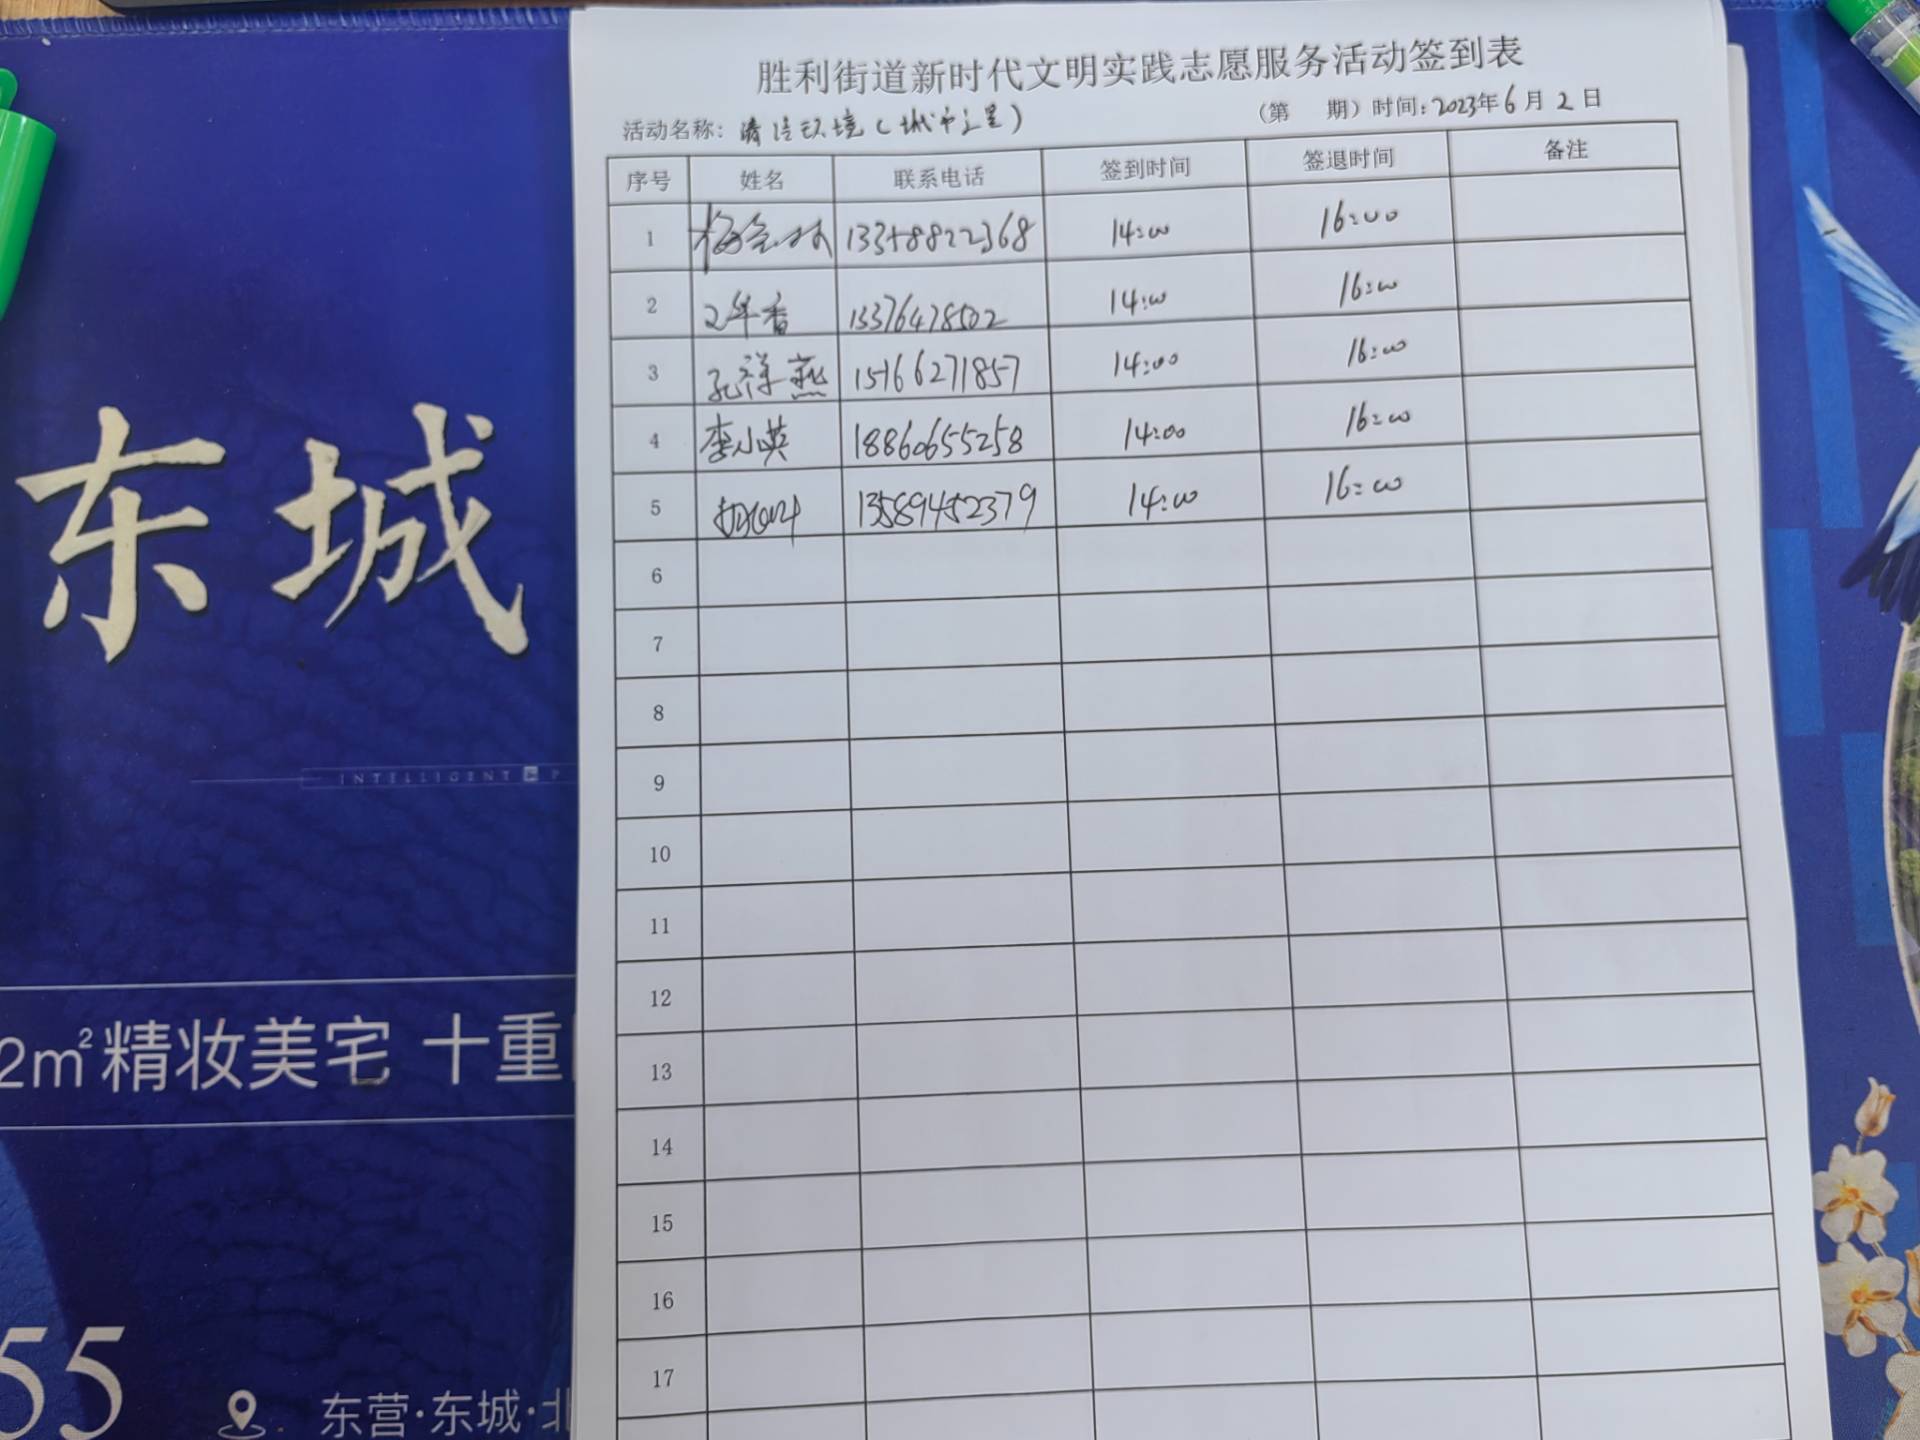 胜利街道新时代文明实践志愿服务活动签到表
活动名称：清洁环境（城市之星） （第 期）时间：2023年6月2日
序号 姓名 联系电话 签到时间 签退时间 备注
1 13358822368 14:00 16:00
2 13376478502 14:00 16:00
3 孔祥燕 15166271857 14:00 16:00
4 李小英 18860655258 14:00 16:00
5 13589452379 14:00 16:00
6
7
8
9
10
11
12
13
14
15
16
17
东城
INTELLIGENT P
2m²精妆美宅 十重
55
东营·东城·北